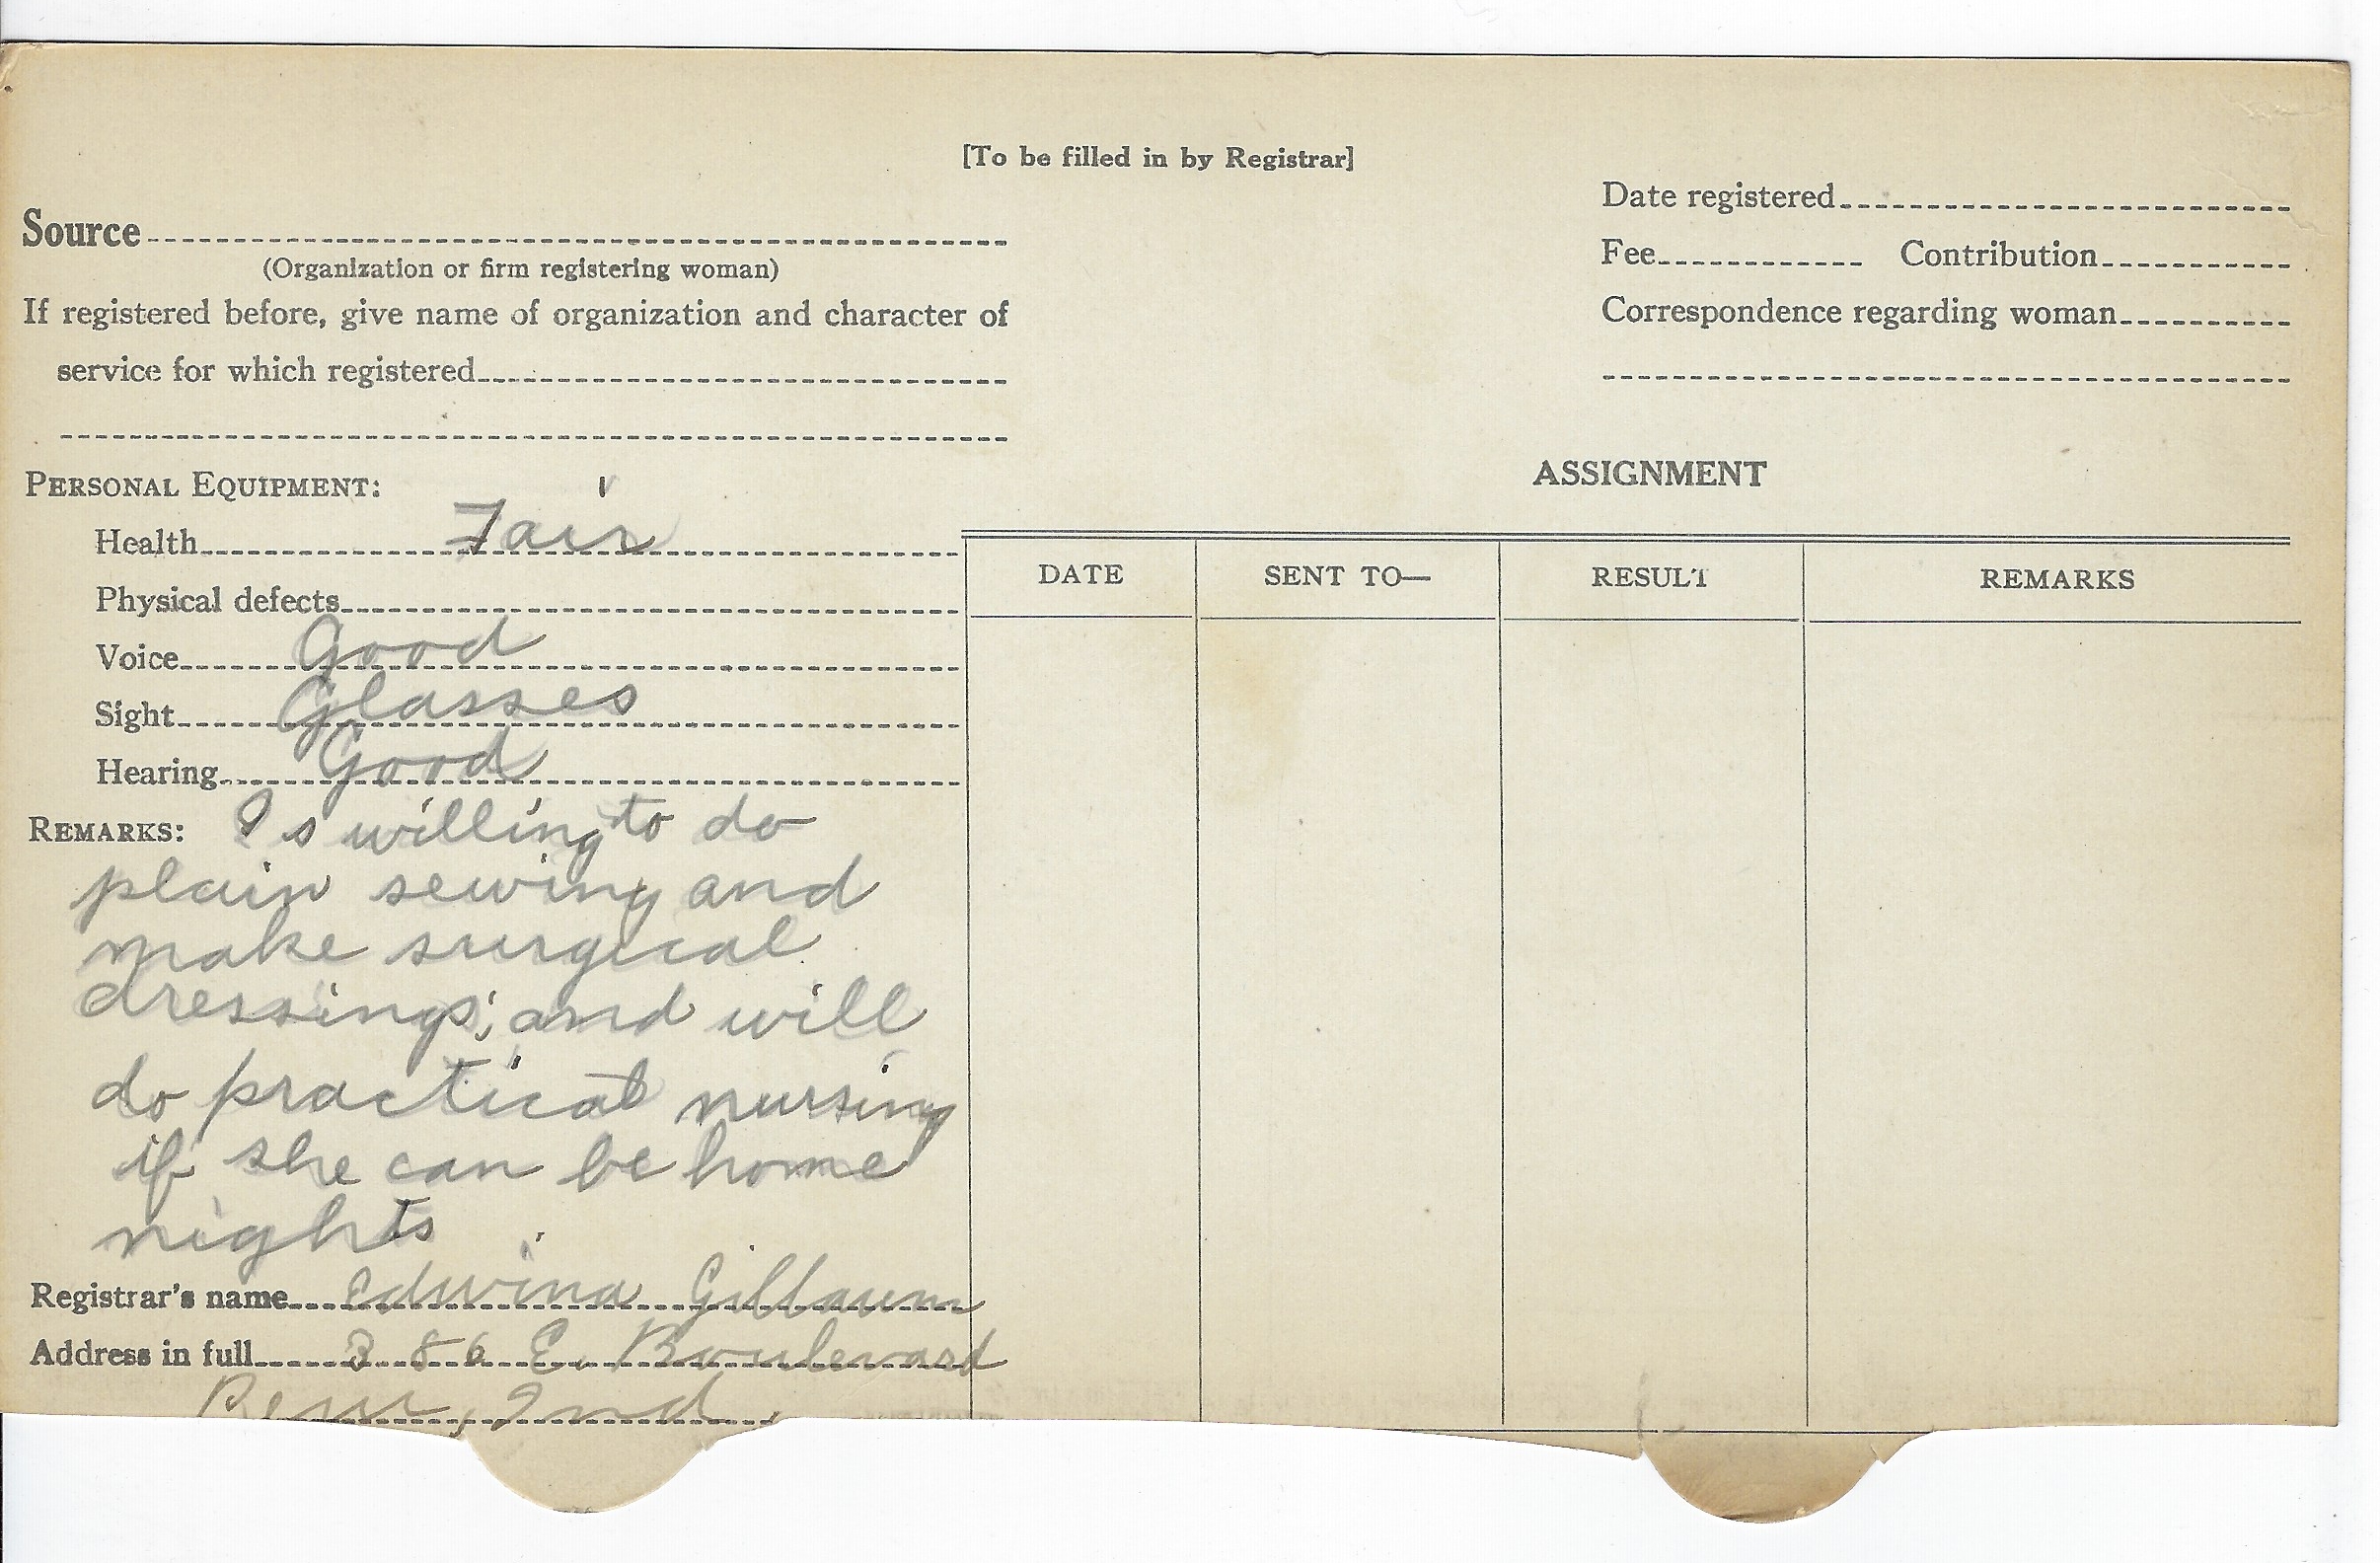 [To be filled in by Registrar]
Date registered
Source
(Organization or firm registering woman)
Fee Contribution
If registered before, give name of organization and character of
Correspondence regarding woman
service for which registered
PERSONAL EQUIPMENT:
ASSIGNMENT
Health Fair
Physical defects
DATE SENT TO— RESULT REMARKS
Voice Good
Sight Glasses
Hearing Good
REMARKS: Is willing to do
plain sewing and
make surgical
dressings; and will
do practical nursing
if she can be home
nights
Registrar's name Edwina Gillaum
Address in full 386 E. Boulevard
Peru, Ind.